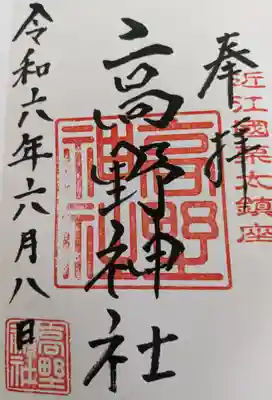 近江國栗太鎮座
奉拝
高野神社
高野神社
令和六年六月八日
高野神社